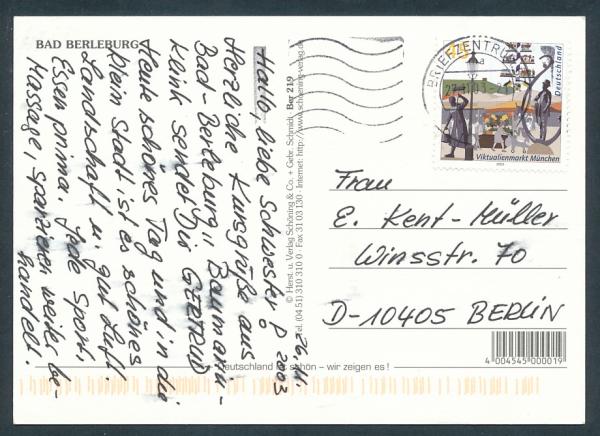 BAD BERLEBURG
26.11.
2003
Hallo, liebe Schwester!
Herzliche Kurgrüße aus
Bad-Berleburg, Baumann-
Klinik sendet Dir GERTRUD
Heute schönes Tag und in die
klein Stadt ist es schönes
Landschaft u. gut Luft.
Essen prima. Jede Sport,
Massage, spanzieren weiter be-
handelt.
© Herst. u. Verlag Schöning & Co. + Gebr. Schmidt, Ber 219
Tel. (04 51) 310 310 0 · Fax 31 03 130 · Internet: http://www.schoening-verlag.de
BRIEFZENTRUM
Deutschland
Viktualienmarkt München
2003
Frau
E. Kent-Müller
Winsstr. 70
D-10405 BERLIN
4 004545 000019
Deutschland ist schön – wir zeigen es !